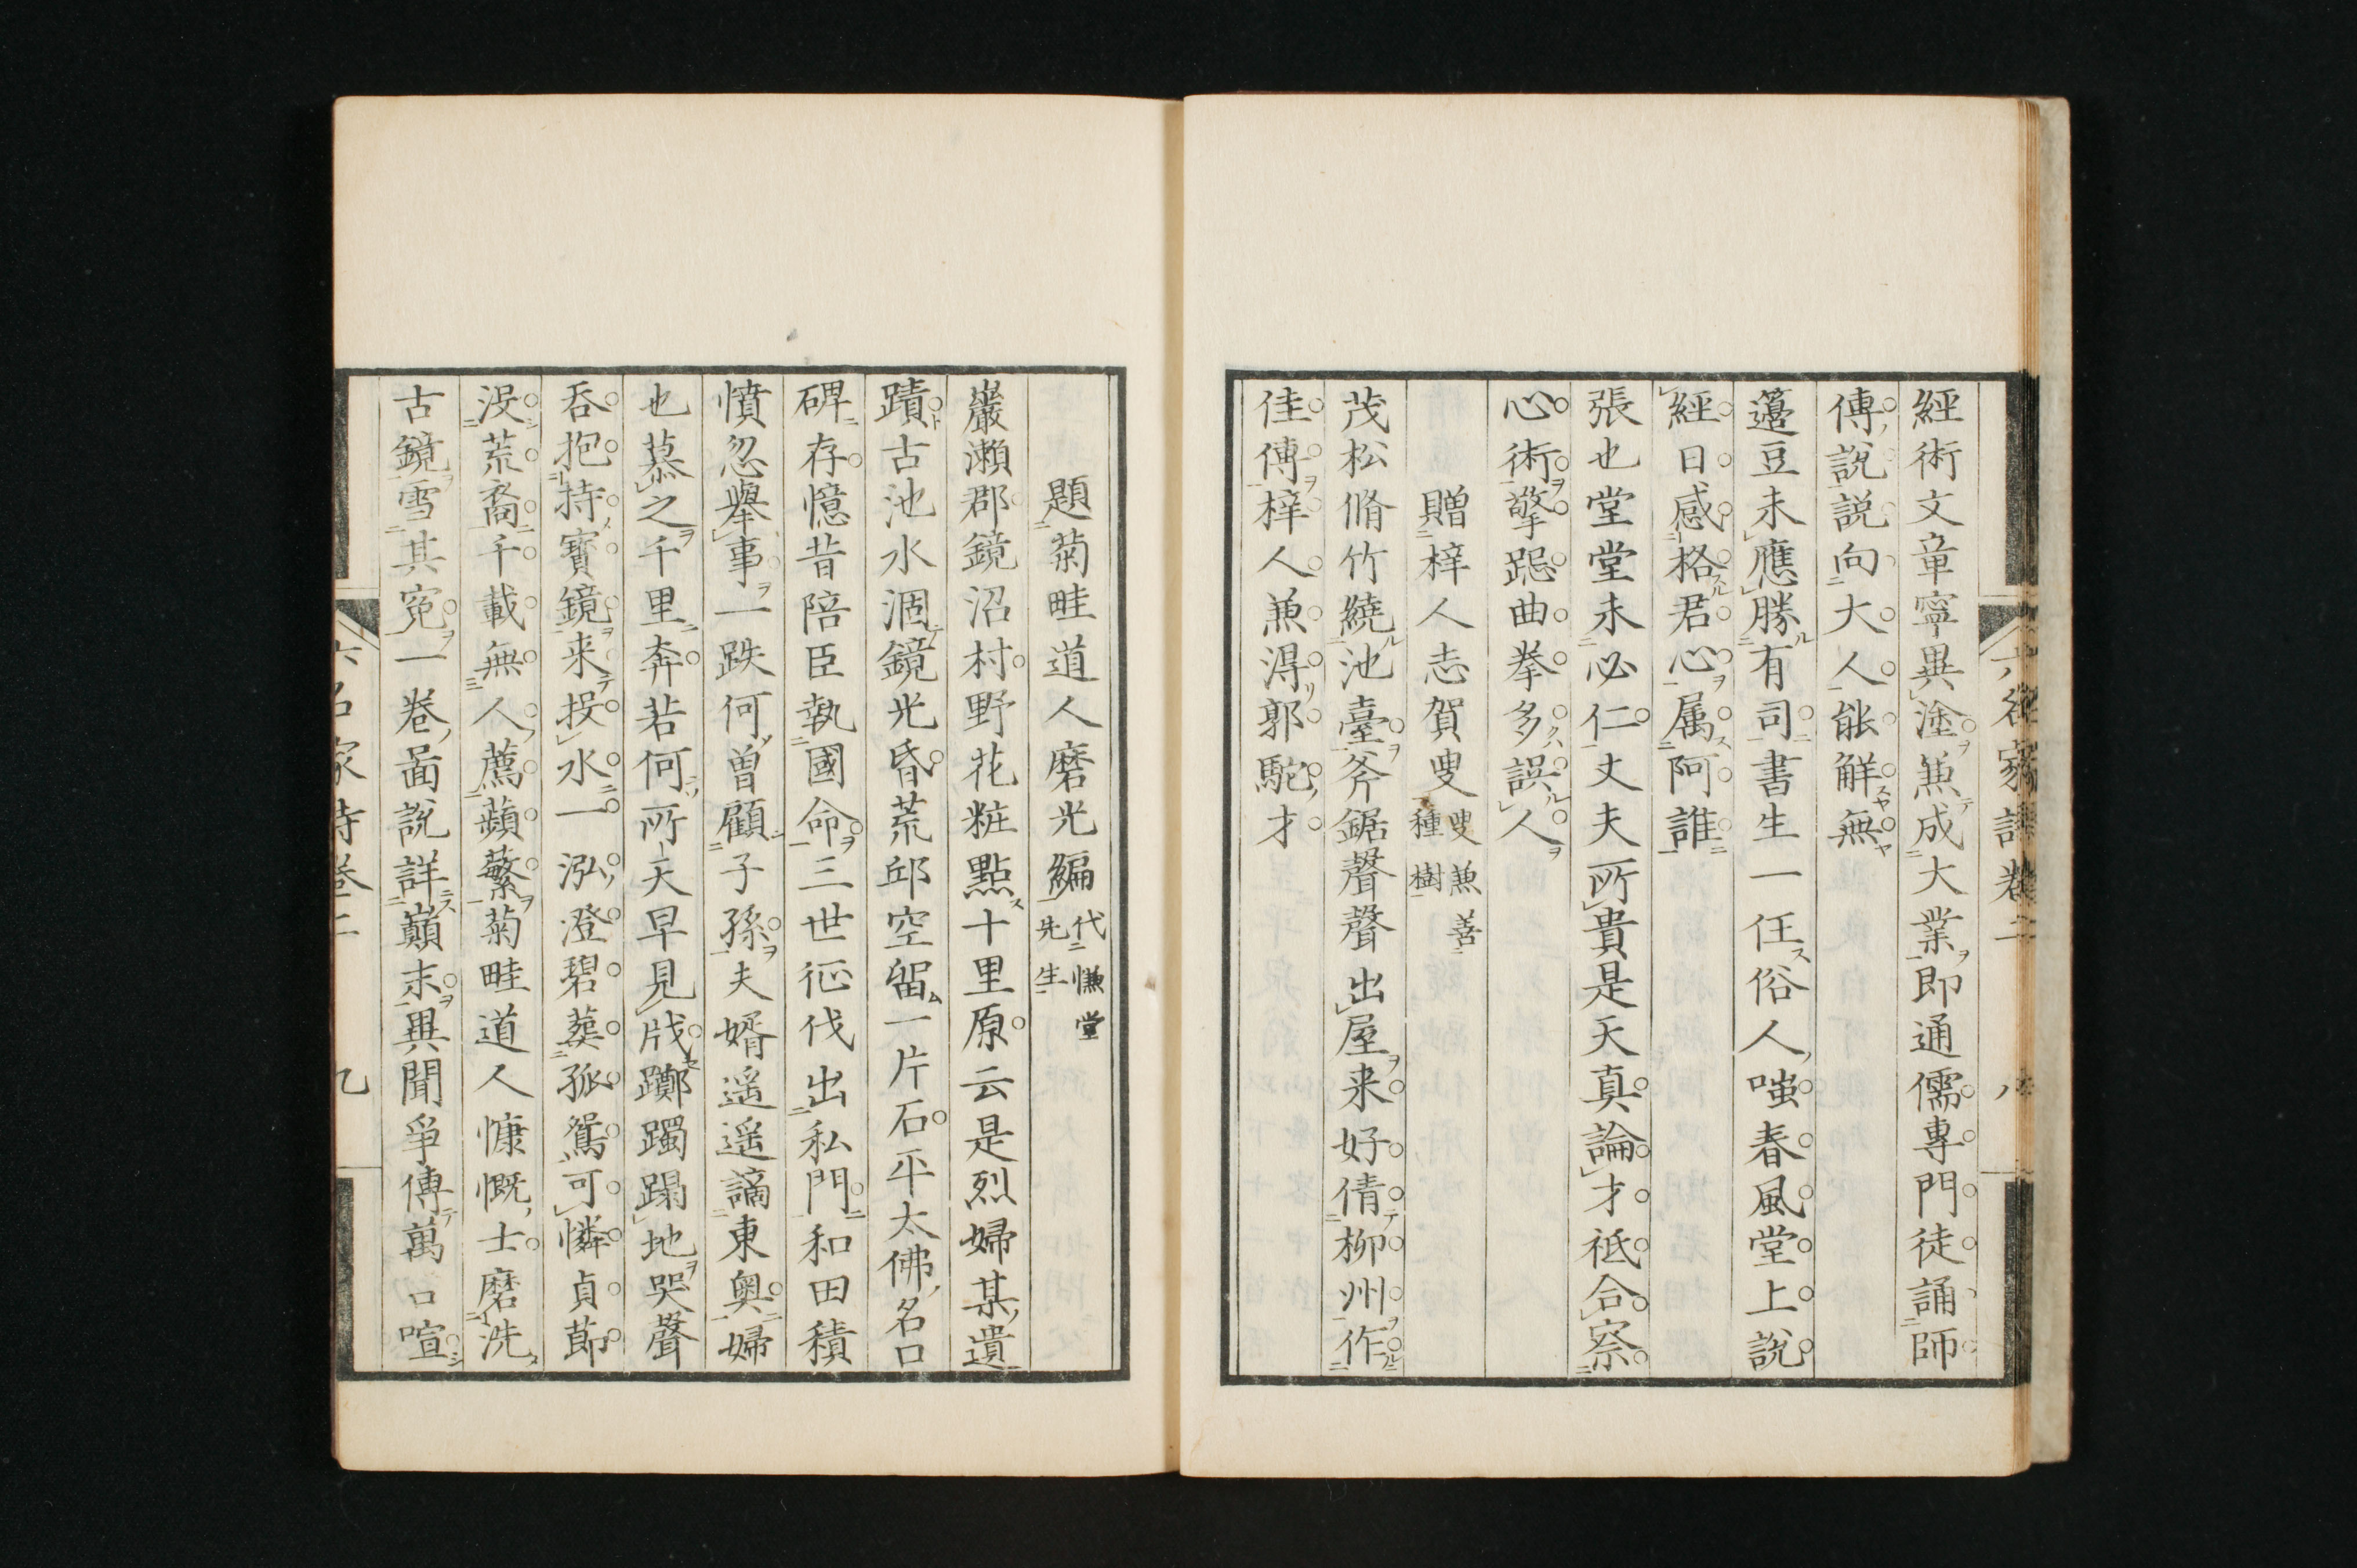 六名家詩卷二 八
經術文章寧異塗兼成大業即通儒專門徒誦師
傳說説向大人能解無
籩豆未應勝有司書生一任俗人嗤春風堂上說
經日感格君心属阿誰
張也堂堂未必仁丈夫所貴是天真論才祗合察
心術擎跽曲拳多誤人
贈梓人志賀叟 叟兼善種樹
茂松脩竹繞池臺斧鋸聲聲出屋来好倩柳州作
佳傳梓人兼得郭駝才
題菊畦道人磨光編 代慊堂先生
巖瀨郡鏡沼村野花粧點十里原云是烈婦某遺
蹟古池水涸鏡光昏荒邱空留一片石平太佛名口
碑存憶昔陪臣執國命三世征伐出私門和田積
憤忽舉事一跌何曽顧子孫夫婿遥遥謫東奥婦
也慕之千里奔若何所天早見戕躑躅蹋地哭聲
吞抱持寶鏡来投水一泓澄碧葬孤鴛可憐貞節
没荒裔千載無人薦蘋蘩菊畦道人慷慨士磨洗
古鏡雪其冤一卷畵說詳巔末異聞爭傳萬口喧
六名家詩卷二 九